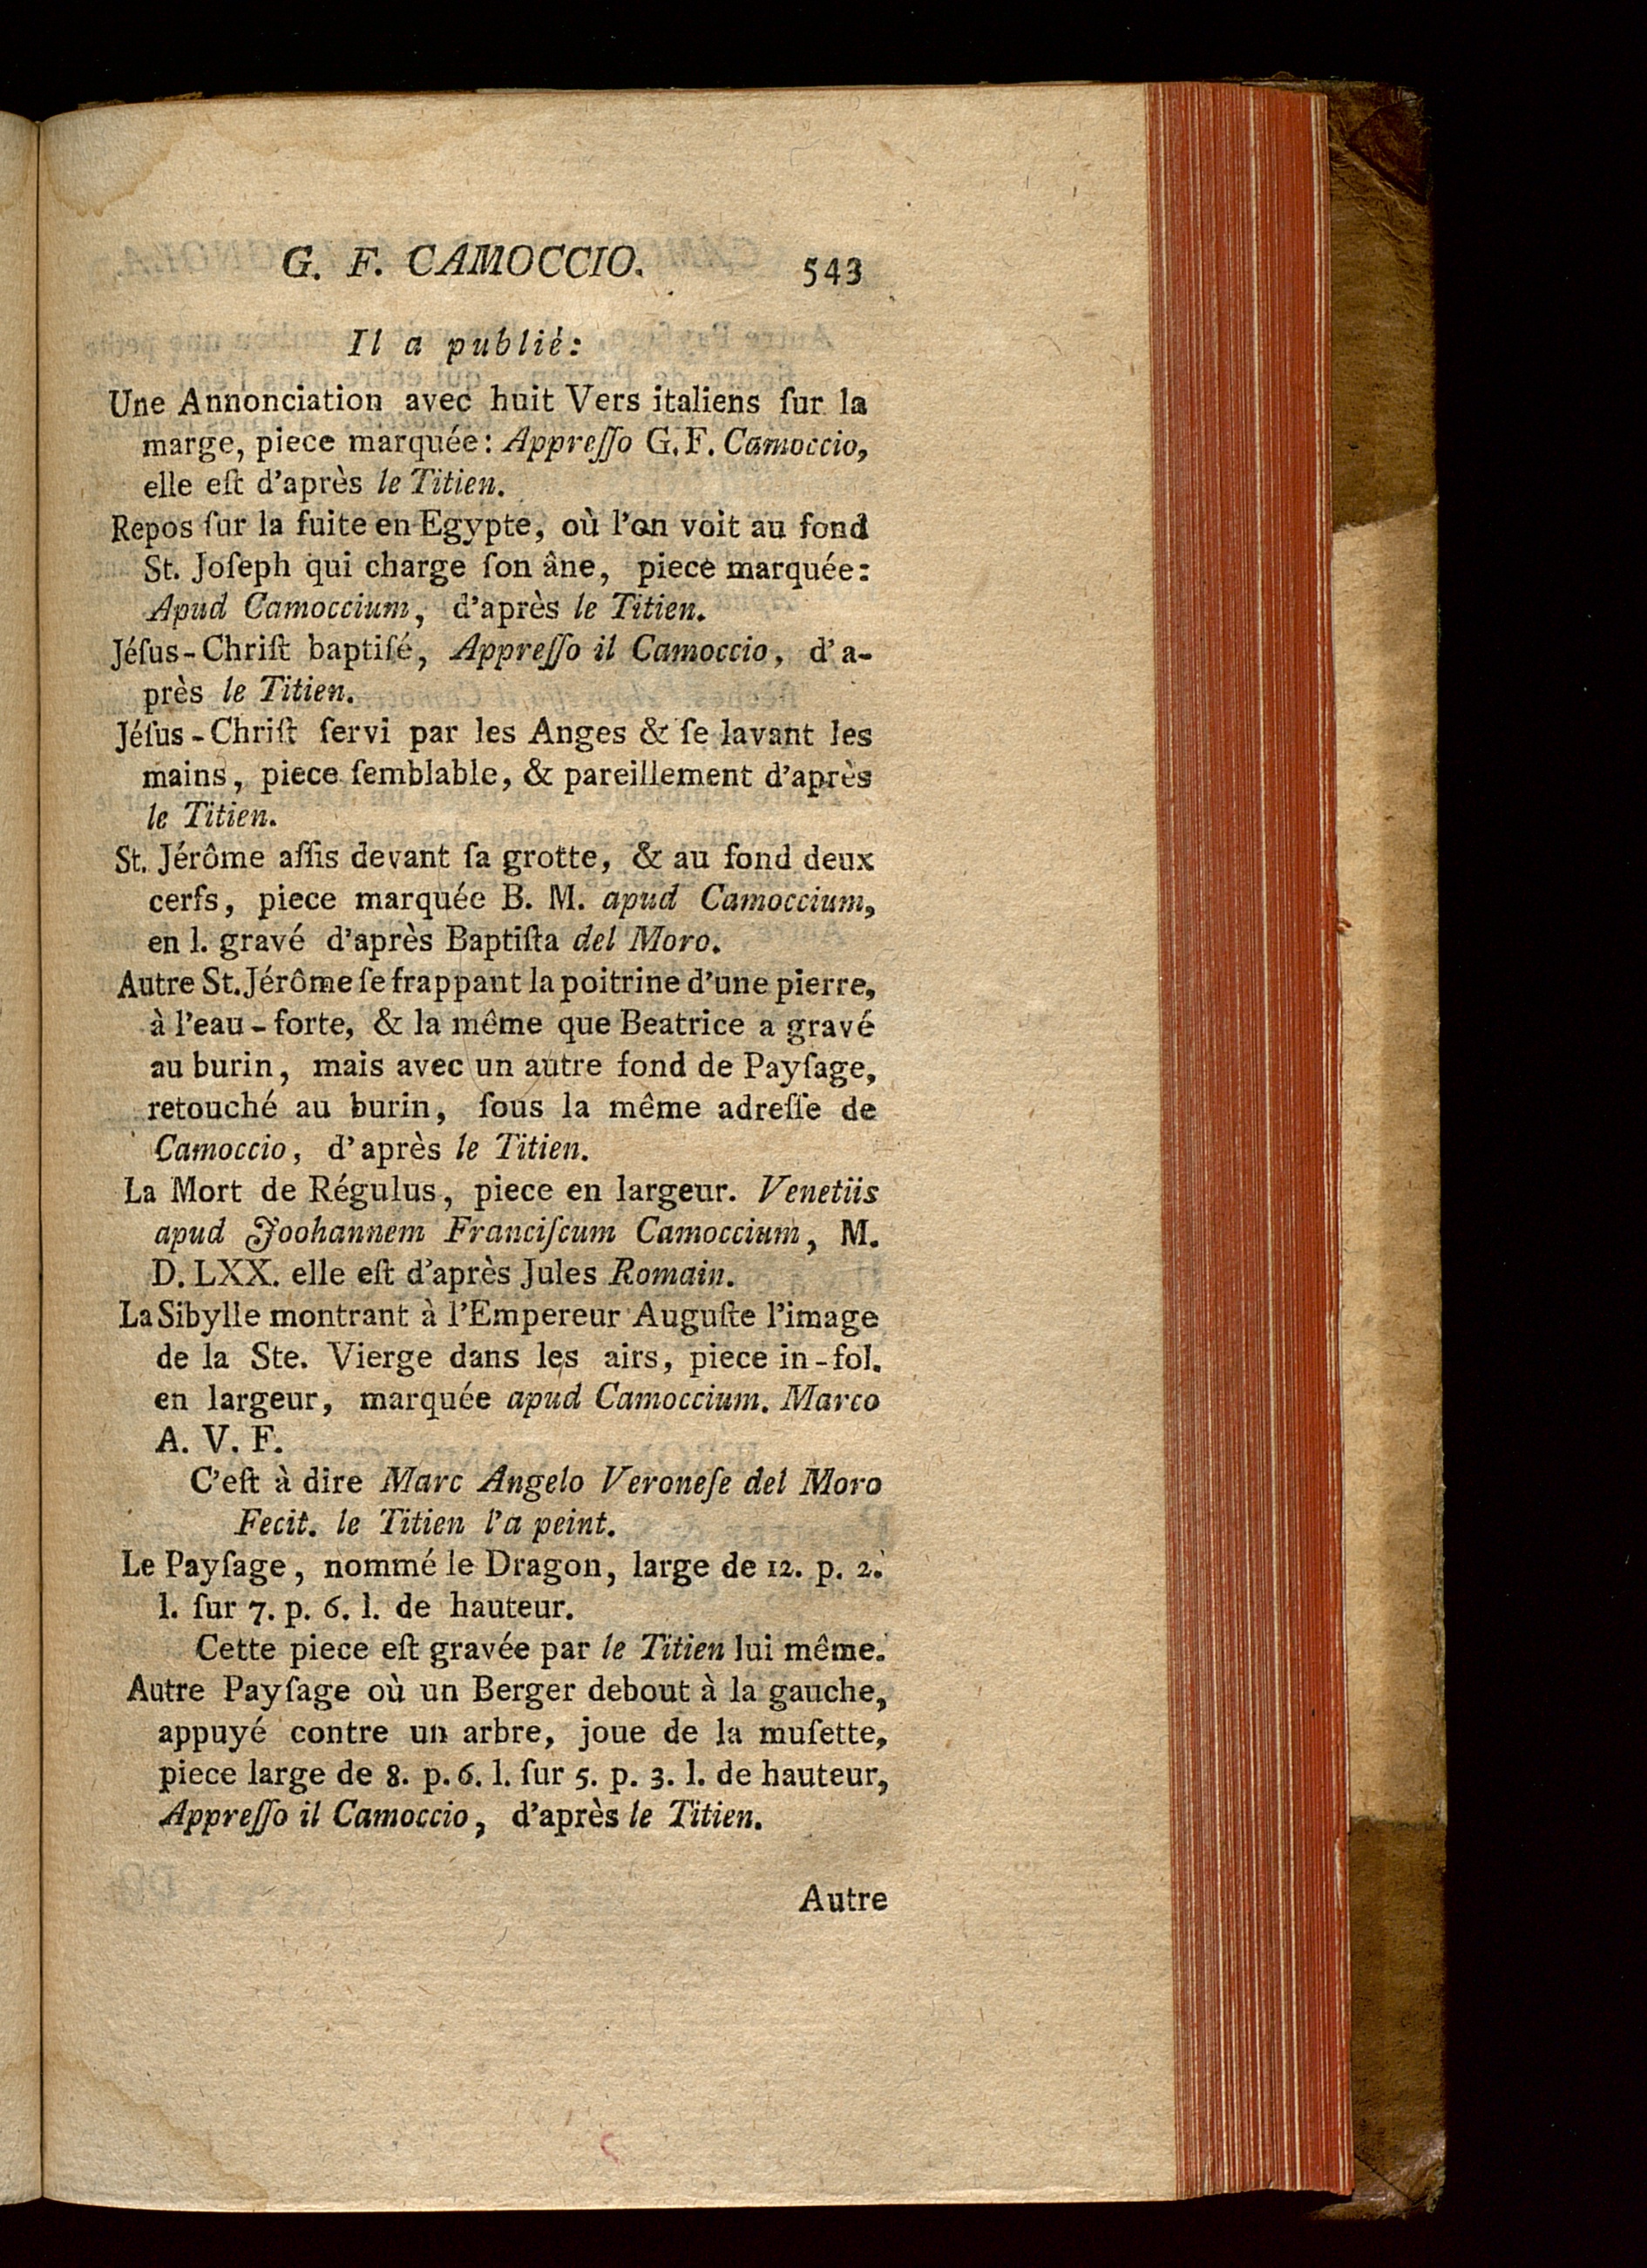 G. F. CAMOCCIO. 543
Il a publié:
Une Annonciation avec huit Vers italiens ſur la
marge, piece marquée: Appreſſo G. F. Camoccio,
elle eſt d'après le Titien.
Repos ſur la fuite en Egypte, où l'on voit au fond
St. Joſeph qui charge ſon âne, piece marquée:
Apud Camoccium, d'après le Titien.
Jéſus-Chriſt baptiſé, Appreſſo il Camoccio, d'a-
près le Titien.
Jéſus-Chriſt ſervi par les Anges & ſe lavant les
mains, piece ſemblable, & pareillement d'après
le Titien.
St. Jérôme aſſis devant ſa grotte, & au fond deux
cerfs, piece marquée B. M. apud Camoccium,
en l. gravé d'après Baptiſta del Moro.
Autre St. Jérôme ſe frappant la poitrine d'une pierre,
à l'eau-forte, & la même que Beatrice a gravé
au burin, mais avec un autre fond de Payſage,
retouché au burin, ſous la même adreſſe de
Camoccio, d'après le Titien.
La Mort de Régulus, piece en largeur. Venetiis
apud Joohannem Franciſcum Camoccium, M.
D. LXX. elle eſt d'après Jules Romain.
La Sibylle montrant à l'Empereur Auguſte l'image
de la Ste. Vierge dans les airs, piece in-fol.
en largeur, marquée apud Camoccium. Marco
A. V. F.
C'eſt à dire Marc Angelo Veroneſe del Moro
Fecit. le Titien l'a peint.
Le Payſage, nommé le Dragon, large de 12. p. 2.
l. ſur 7. p. 6. l. de hauteur.
Cette piece eſt gravée par le Titien lui même.
Autre Payſage où un Berger debout à la gauche,
appuyé contre un arbre, joue de la muſette,
piece large de 8. p. 6. l. ſur 5. p. 3. l. de hauteur,
Appreſſo il Camoccio, d'après le Titien.
Autre